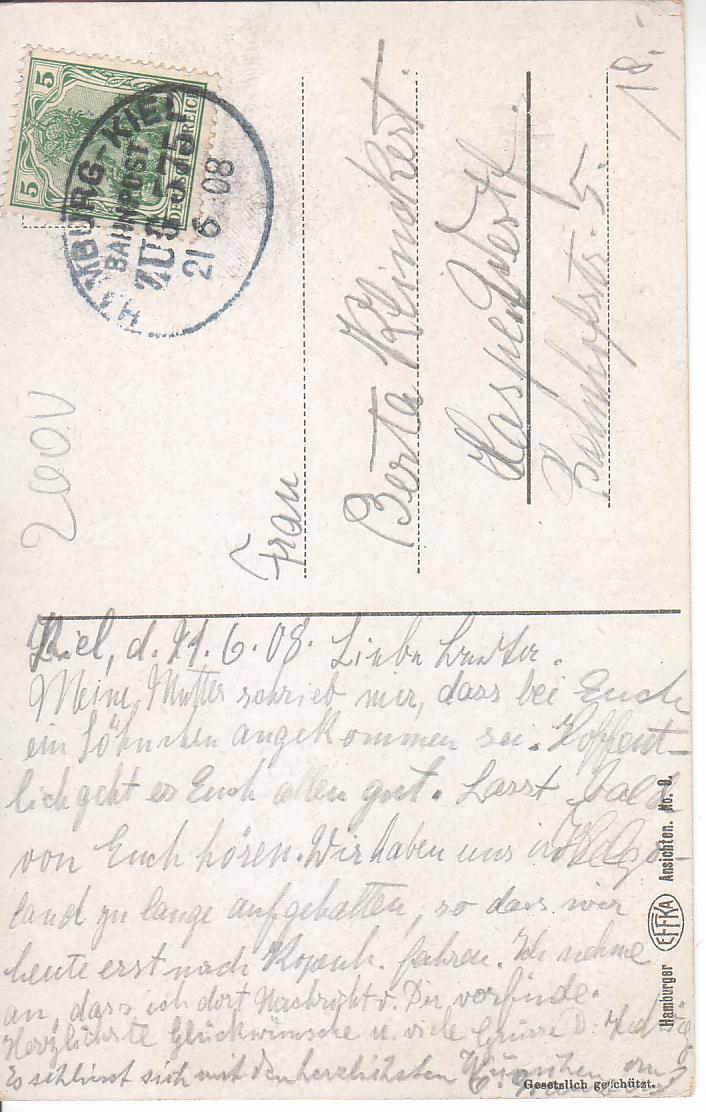 5
5
DEUTSCHES REICH
HAMBURG-KIEL
BAHNPOST
ZUG
21 6 08
18.-
2000V
Frau
Berta Klinckert.
Haspe Westf.
Bahnhofstr. 5.
Kiel, d. 21.6.08. Liebe
Meine Mutter schrieb mir, dass bei Euch
ein Söhnchen angekommen sei. Hoffent-
lich geht es Euch allen gut. Lasst bald
von Euch hören. Wir haben uns in Helgo-
land zu lange aufgehalten, so dass wir
heute erst nach Kopenh. fahren. Ich nehme
an, dass ich dort Nachricht v. Dir vorfinde.
Herzlichste Glückwünsche u. viele Grüsse D. Hedwig
Es schliesst sich mit den herzlichsten Wünschen an
Hamburger EFFKA Ansichten. No. 9.
Gesetzlich geschützt.